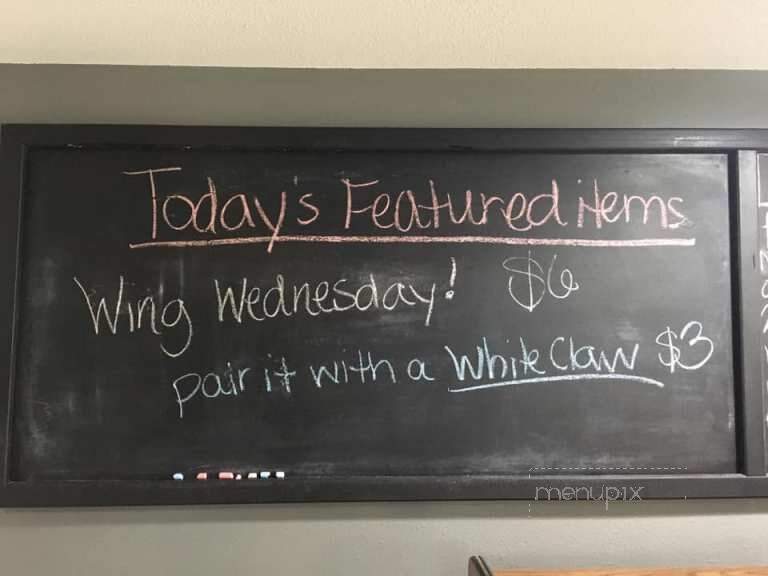 Today's Featured items
Wing Wednesday! $6
pair it with a White Claw $3
menupix